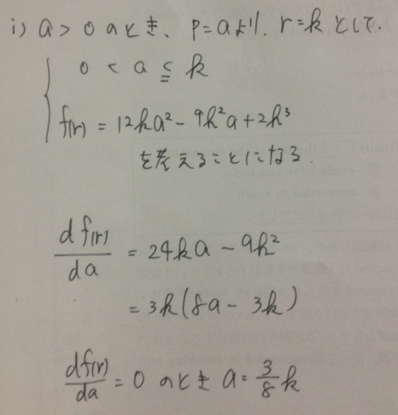 i) a > 0 のとき、 P=aより、 r=k として.
0 < a ≦ k
f(r) = 12ka² - 9k²a + 2k³
を考えることになる.
df(r)/da = 24ka - 9k²
= 3k(8a - 3k)
df(r)/da = 0 のとき a = 3/8 k